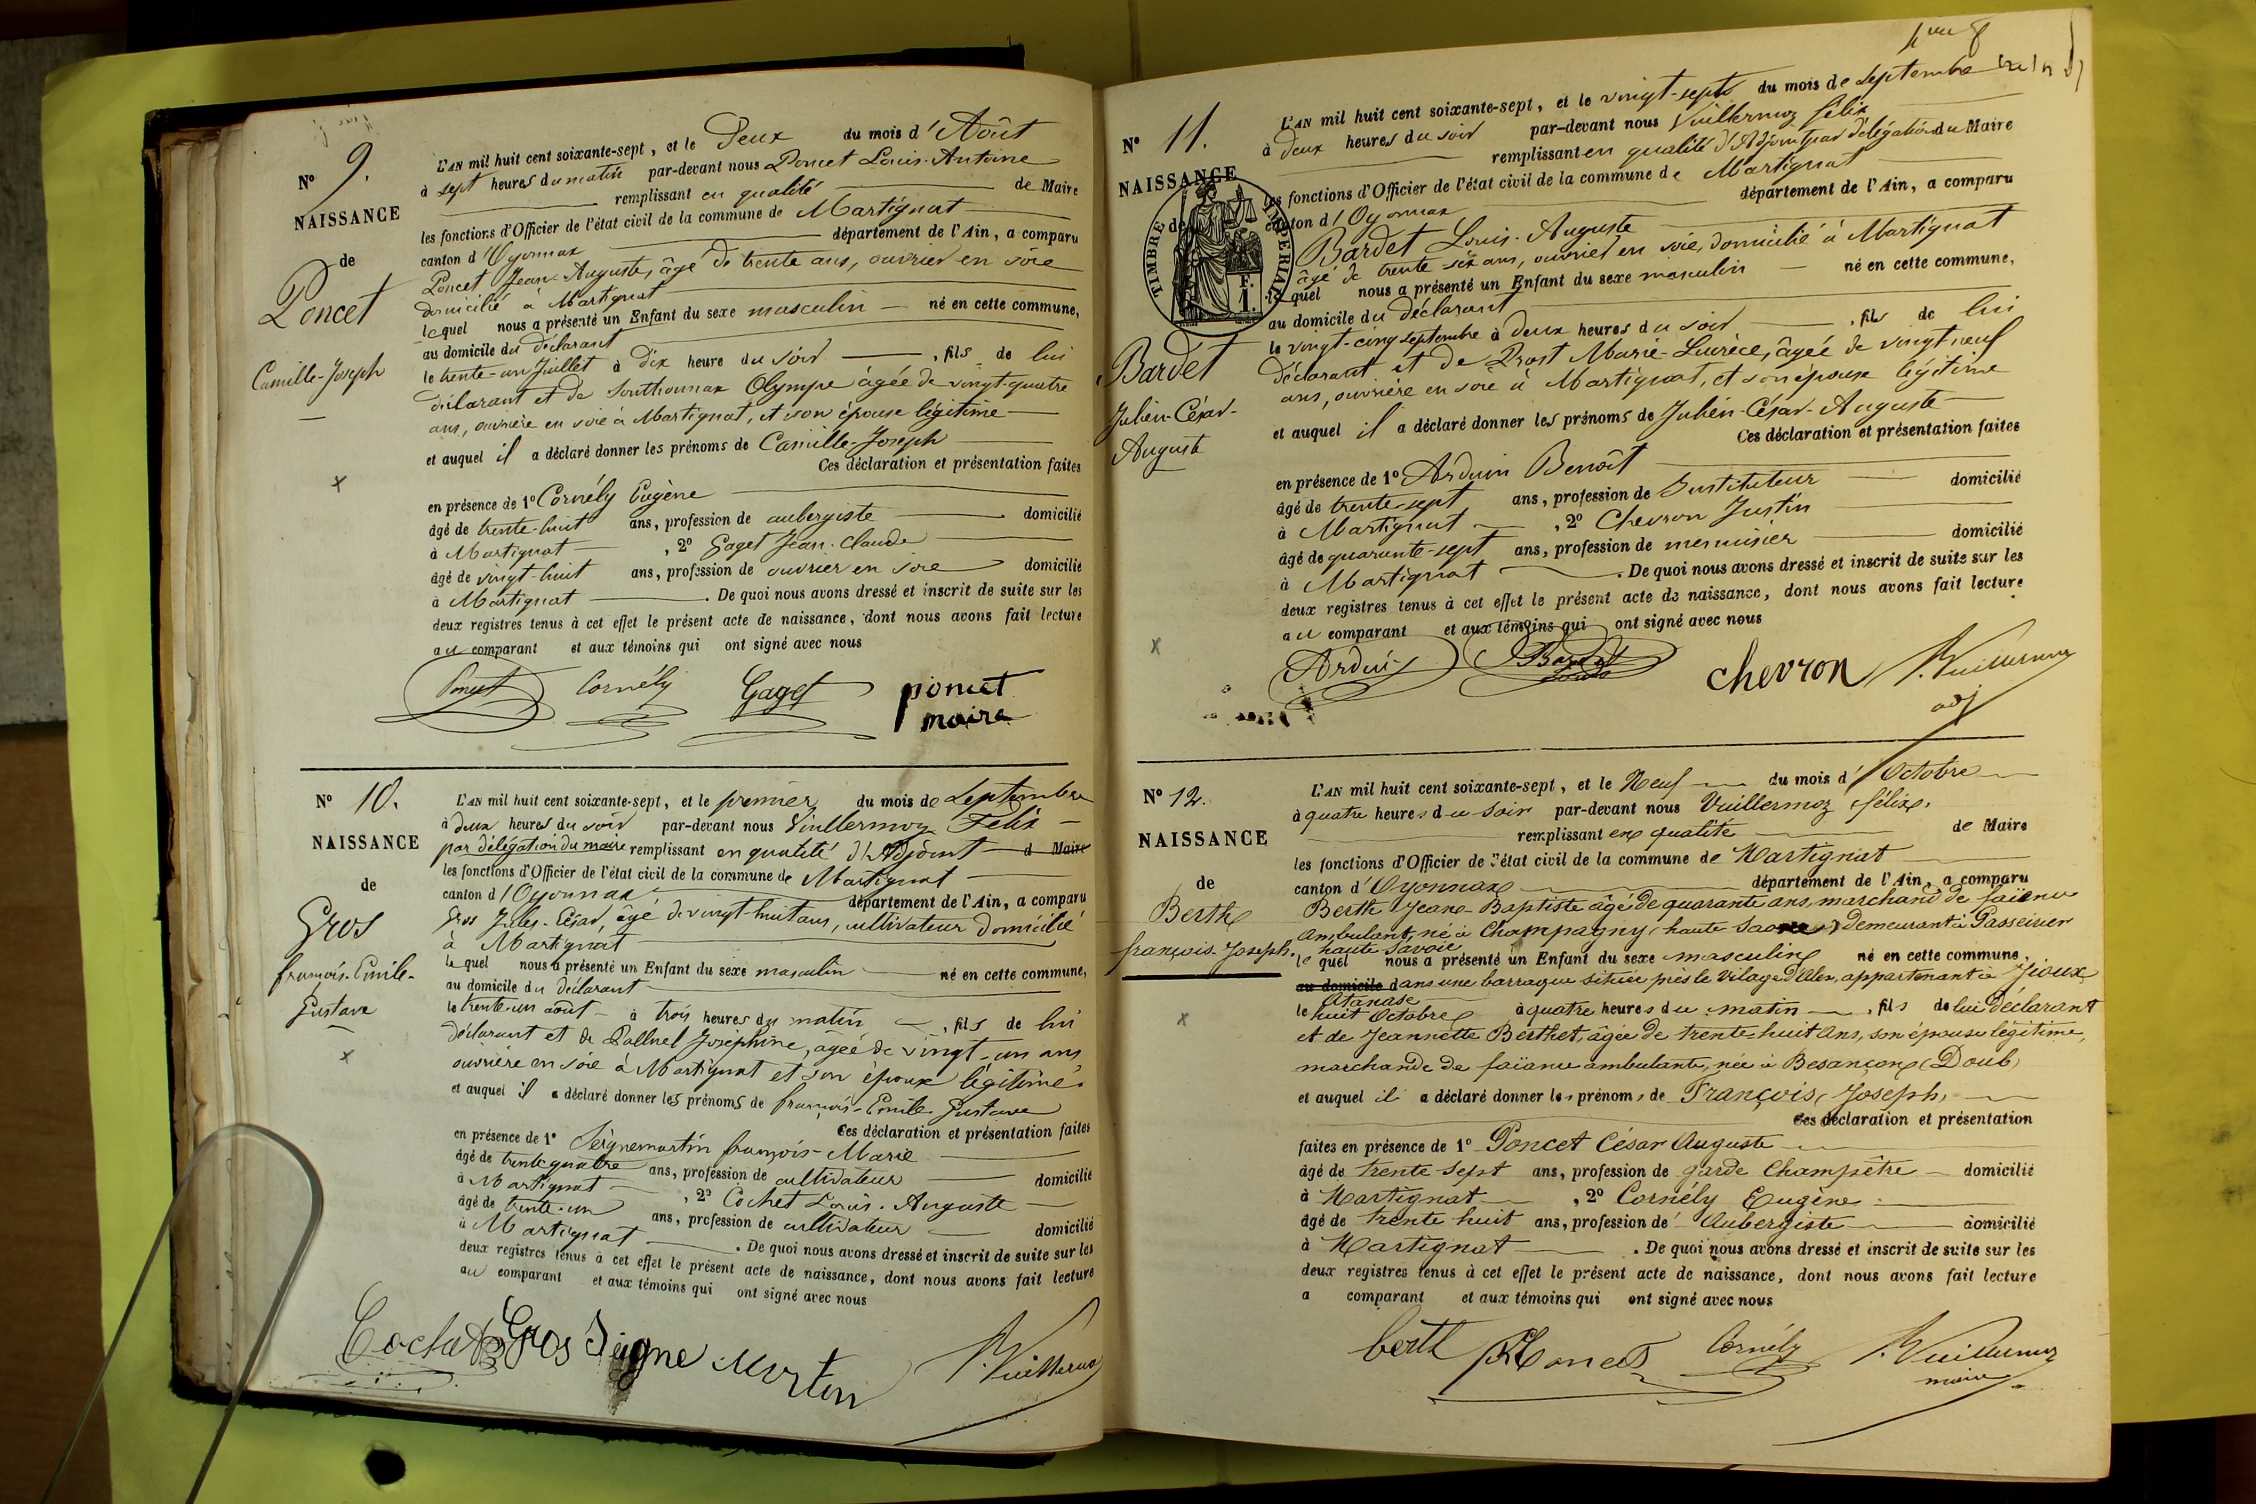 N° 9.
NAISSANCE
de
Poncet
Camille-Joseph
L'AN mil huit cent soixante-sept, et le Deux du mois d'Août
à sept heures du matin par-devant nous Poncet Louis-Antoine
remplissant en qualité de Maire
les fonctions d'Officier de l'état civil de la commune de Martignat
canton d'Oyonnax département de l'Ain, a comparu
Poncet Jean-Auguste, âgé de trente ans, ouvrier en soie
domicilié à Martignat
lequel nous a présenté un Enfant du sexe masculin né en cette commune,
au domicile du déclarant
le trente-un Juillet à dix heure du soir, fils de lui
déclarant et de Southonnax Olympe âgée de vingt-quatre
ans, ouvrière en soie à Martignat, et son épouse légitime
et auquel il a déclaré donner les prénoms de Camille-Joseph
Ces déclaration et présentation faites
en présence de 1° Cornély Eugène
âgé de trente-huit ans, profession de aubergiste domicilié
à Martignat, 2° Gaget Jean-Claude
âgé de vingt-huit ans, profession de ouvrier en soie domicilié
à Martignat. De quoi nous avons dressé et inscrit de suite sur les
deux registres tenus à cet effet le présent acte de naissance, dont nous avons fait lecture
au comparant et aux témoins qui ont signé avec nous
Poncet Cornély Gaget poncet
maire
N° 10.
NAISSANCE
de
Gros
françois-Emile-
Gustave
L'AN mil huit cent soixante-sept, et le premier du mois de Septembre
à deux heures du soir par-devant nous Vuillermoz Félix
par délégation du maire remplissant en qualité d'Adjoint d Maire
les fonctions d'Officier de l'état civil de la commune de Martignat
canton d'Oyonnax département de l'Ain, a comparu
Gros Jules-César, âgé de vingt-huit ans, cultivateur domicilié
à Martignat
lequel nous a présenté un Enfant du sexe masculin né en cette commune,
au domicile du déclarant
le trente-un août à trois heures du matin, fils de lui
déclarant et de Joséphine, âgée de vingt-un ans
ouvrière en soie à Martignat et son épouse légitime.
et auquel il a déclaré donner les prénoms de françois-Emile-Gustave
Ces déclaration et présentation faites
en présence de 1° Seignemartin françois-Marie
âgé de trente quatre ans, profession de cultivateur domicilié
à Martignat, 2° Cochet Louis-Auguste
âgé de trente-un ans, profession de cultivateur domicilié
à Martignat. De quoi nous avons dressé et inscrit de suite sur les
deux registres tenus à cet effet le présent acte de naissance, dont nous avons fait lecture
au comparant et aux témoins qui ont signé avec nous
Cochet Gros Seigne Martin Vuillermoz
N° 11.
NAISSANCE
de
TIMBRE IMPERIAL
F. 1.
Bardet
Julien-César-
Auguste
L'AN mil huit cent soixante-sept, et le vingt-sept du mois de septembre
à deux heures du soir par-devant nous Vuillermoz félix
remplissant en qualité d'Adjoint par délégation du Maire
les fonctions d'Officier de l'état civil de la commune de Martignat
canton d'Oyonnax département de l'Ain, a comparu
Bardet Louis-Auguste
âgé de trente six ans, ouvrier en soie, domicilié à Martignat
lequel nous a présenté un Enfant du sexe masculin né en cette commune,
au domicile du déclarant
le vingt-cinq septembre à deux heures du soir, fils de lui
déclarant et de Prost Marie-Lucrèce, âgée de vingt neuf
ans, ouvrière en soie à Martignat, et son épouse légitime
et auquel il a déclaré donner les prénoms de Julien-César-Auguste
Ces déclaration et présentation faites
en présence de 1° Arduin Benoît
âgé de trente-sept ans, profession de Instituteur domicilié
à Martignat, 2° Chevron Justin
âgé de quarante-sept ans, profession de menuisier domicilié
à Martignat. De quoi nous avons dressé et inscrit de suite sur les
deux registres tenus à cet effet le présent acte de naissance, dont nous avons fait lecture
au comparant et aux témoins qui ont signé avec nous
Arduin Bardet chevron Vuillermoz
adj
N° 12.
NAISSANCE
de
Berth
françois-Joseph.
L'AN mil huit cent soixante-sept, et le Neuf du mois d'Octobre
à quatre heures du soir par-devant nous Vuillermoz félix,
remplissant en qualité de Maire
les fonctions d'Officier de l'état civil de la commune de Martignat
canton d'Oyonnax département de l'Ain, a comparu
Berth Jean-Baptiste âgé de quarante ans, marchand de faïence
ambulant, né à Champagny (haute Saone) demeurant à Passeirier
haute Savoie
lequel nous a présenté un Enfant du sexe masculin né en cette commune,
au domicile dans une barraque située près le Vilage d'Alex, appartenant à Jioux
Atanase
le huit Octobre à quatre heures du matin, fils de lui déclarant
et de Jeannette Berthet, âgée de trente-huit ans, son épouse légitime,
marchande de faïance ambulante, née à Besançon (Doub)
et auquel il a déclaré donner les prénoms de François, Joseph,
Ces déclaration et présentation
faites en présence de 1° Poncet César Auguste
âgé de trente-sept ans, profession de garde Champêtre domicilié
à Martignat, 2° Cornély Eugène
âgé de trente huit ans, profession de Aubergiste domicilié
à Martignat. De quoi nous avons dressé et inscrit de suite sur les
deux registres tenus à cet effet le présent acte de naissance, dont nous avons fait lecture
a comparant et aux témoins qui ont signé avec nous
berth Poncet Cornély Vuillermoz
maire